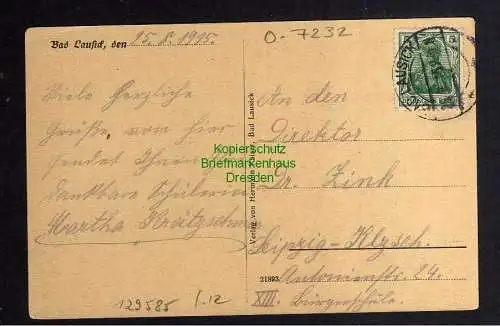 O-7232
Bad Lausick, den 15.8.1915.
LAUSICK
Viele Herzliche
Grüße von hier
sendet Ihnen Ihre
dankbare Schülerin
Martha Krätzschmar
Kopierschutz
Briefmarkenhaus
Dresden
Verlag von Bad Lausick
An den
Direktor
Dr. Zink
Leipzig-Klzsch.
Antonienstr. 24.
XIII. Bürgerschule.
21893
129585 f.12